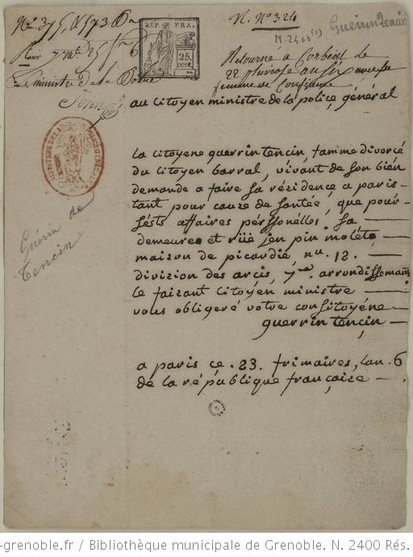 N. N° 324
N. 2400 (1)
Guérin Tencin
RÉP. FRA.
25
CENT.
Retourne a Corbeil le
22 pluviose an six avec sa
femme de Confiance
au citoyen ministre de la police, général
la citoyene guerrin tencin, famme divorcé
du citoyen barral, vivant de son bien
demande a faire sa résidence a paris
tant pour cause de santée, que pour
sests affaires péssonelles sa
demeure et rüe jen pin molét
maison de picardie, nu. 12.
division des arcis, 7me arrondissemans
le faizant citoyen ministre
vous obligeré votre consitoyéne
guerrin tencin
Guérin de
Tencin
a paris ce 23. frimaires, lan 6
de la république française
-grenoble.fr / Bibliothèque municipale de Grenoble. N. 2400 Rés.